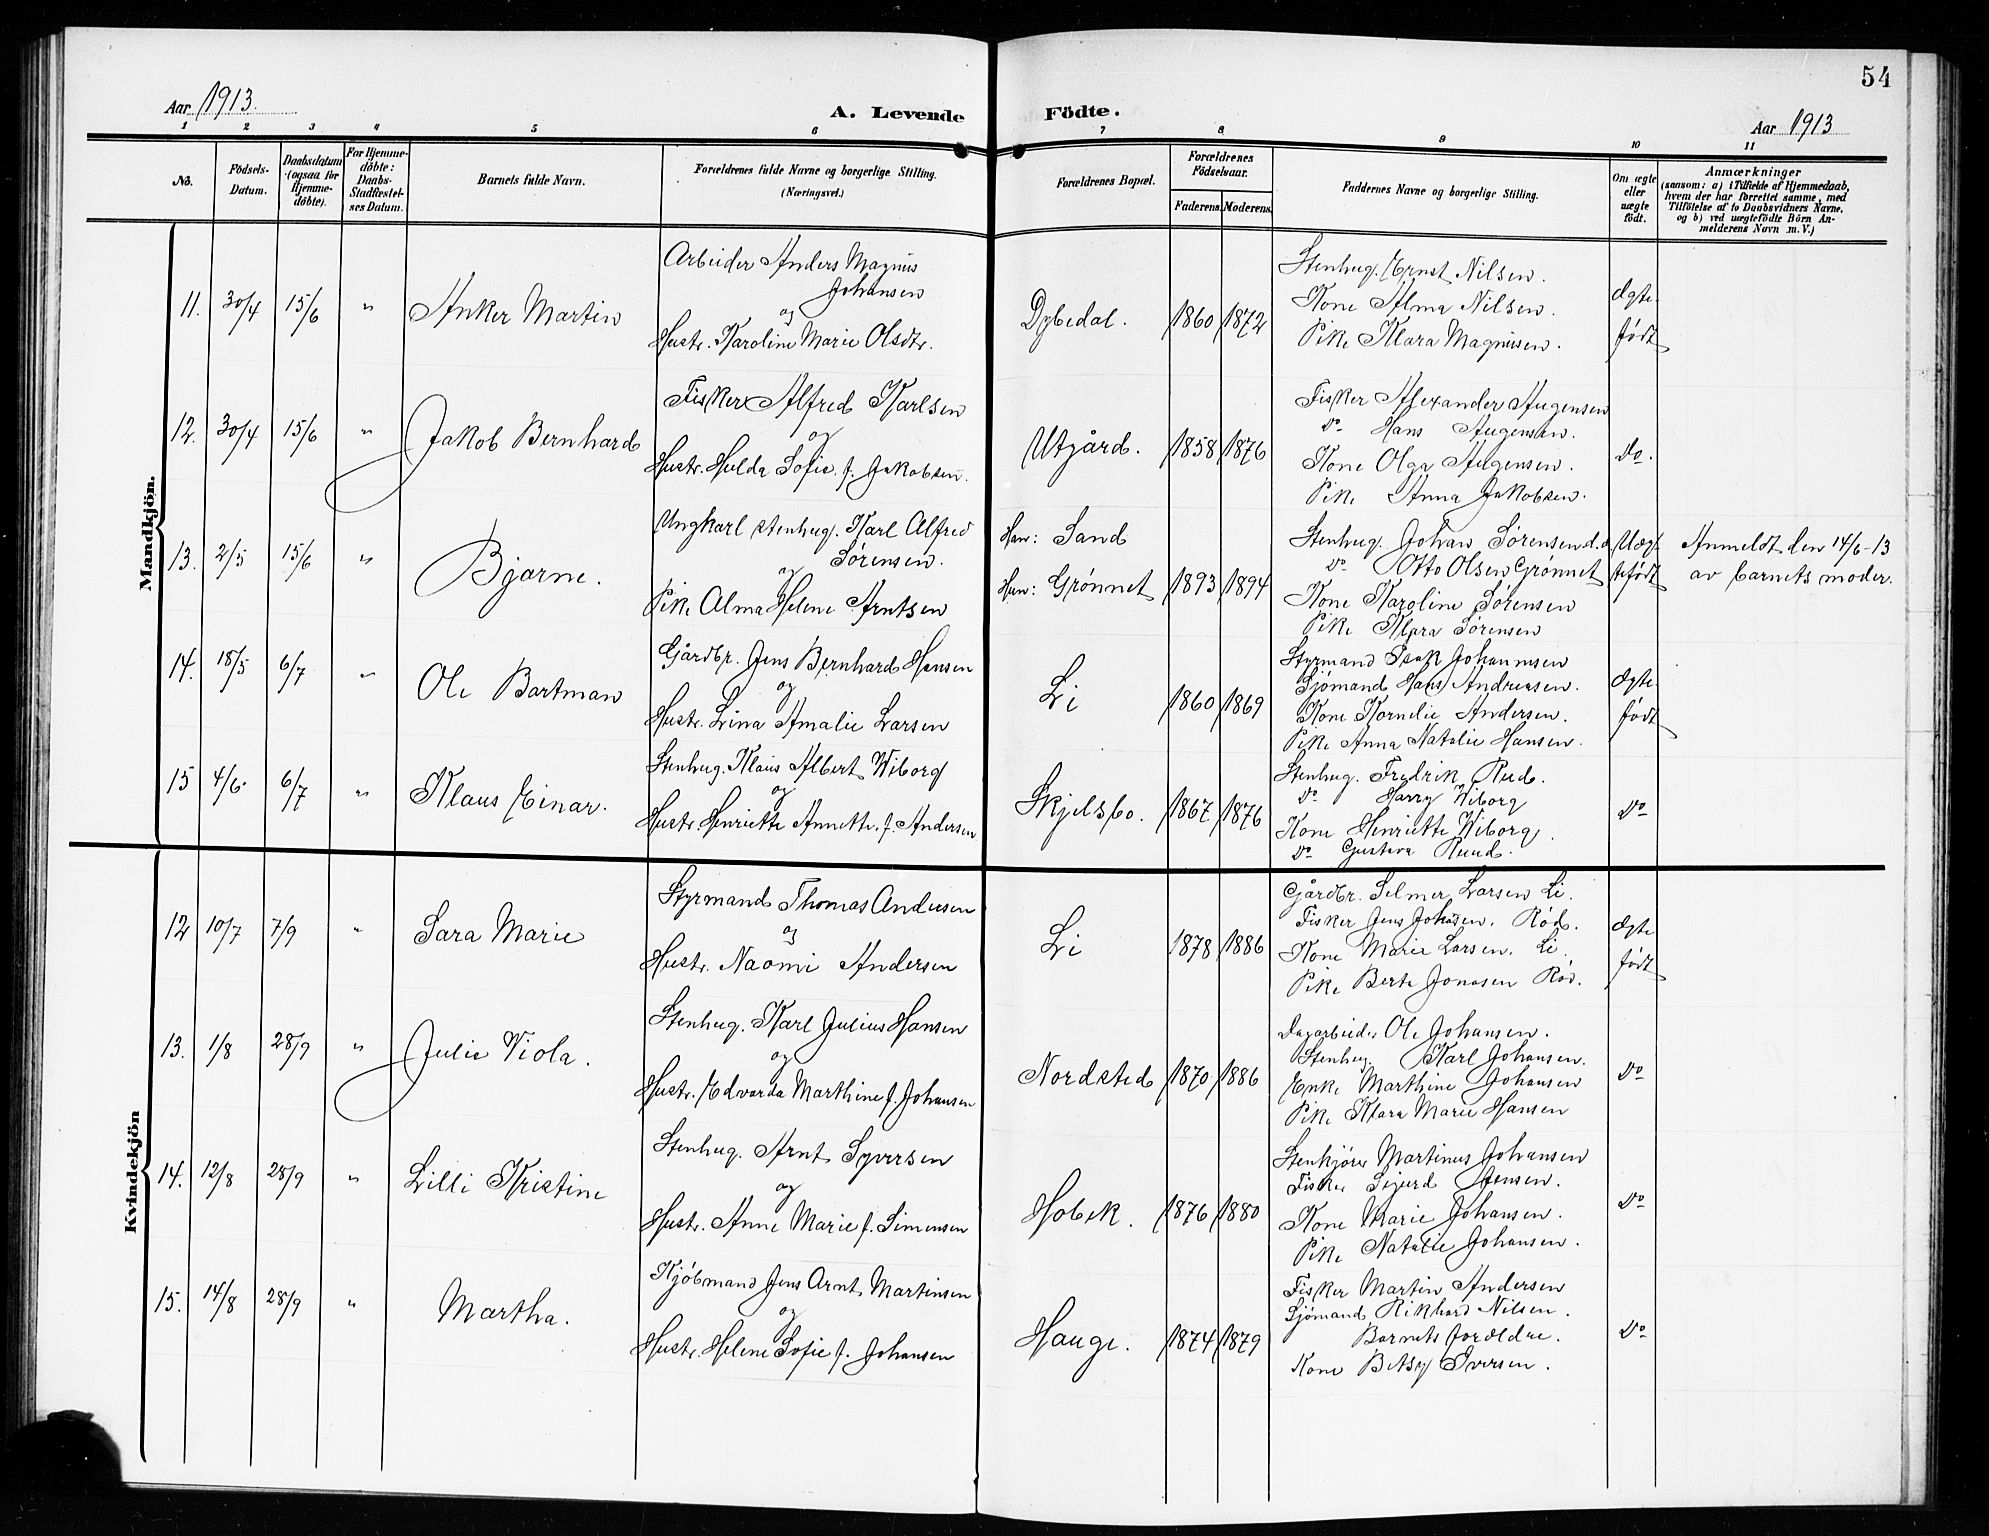 54
Aar 1913.
A. Levende
Födte.
Aar 1913
1 2 3 4 5 6 7 8 9 10 11
No.
Födsels-
Datum.
Daabsdatum
(ogsaa for
Hjemme-
döbte).
For Hjemme-
döbte:
Daabs-
Stadfæstel-
ses Datum.
Barnets fulde Navn.
Forældrenes fulde Navne og borgerlige Stilling.
(Næringsvei.)
Forældrenes Bopæl.
Forældrenes
Födselsaar.
Faderens. Moderens.
Faddernes Navne og borgerlige Stilling.
Om ægte
eller
uægte
födt.
Anmærkninger
(saasom: a) i Tilfælde af Hjemmedaab,
hvem der har forrettet samme, med
Tilföielse af to Daabsvidners Navne,
og b) ved uægtefödte Börn An-
melderens Navn m. V.)
Mandkjön.
11. 30/4 15/6 " Anker Martin
Arbeider Anders Magnus
Johansen
og
Hustr. Karoline Marie Olsdtr.
Dybedal. 1860 1872
Stenhug. Ernst Nilsen.
Kone Alma Nilsen.
Pike Klara Magnusen.
Ægte-
født
12. 30/4 15/6 " Jakob Bernhard
Fisker Alfred Karlsen
og
Hustr. Hulda Sofie f. Jakobsen.
Utgård. 1858 1876
Fisker Alexander Augensen
Do Hans Augensen.
Kone Olga Augensen.
Pike Anna Jakobsen.
Do.
13. 2/5 15/6 " Bjarne.
Ungkarl stenhug. Karl Alfred
Sørensen.
og
Pike Alma Helene Arntsen
Han: Sand
Hun: Grønnet 1893 1894
Stenhug. Johan Sørensen d.æ
Do Otto Olsen Grønnet
Kone Karoline Sørensen
Pike Klara Sørensen
Uæg-
tefødt
Anmeldt den 14/6-13
av barnets moder.
14. 18/5 6/7 " Ole Bartman
Gårdbr. Jens Bernhard Hansen
og
Hustr. Lina Amalie Larsen
Li 1860 1869
Styrmand Isak Johannesen
Sjømand Hans Andreasen.
Kone Kornelie Andersen.
Pike Anna Natalie Hansen.
Ægte-
født
15 4/6. 6/7 " Klaus Einar.
Stenhug. Klaus Albert Wiborg
og
Hustr. Henriette Annette f. Andersen
Skjelsbo. 1867 1876
Stenhug. Fredrik Rud.
Do Harry Wiborg
Kone Henriette Wiborg.
Do Gustava Ruud.
Do
Kvindekjön
12 10/7 7/9 " Sara Marie
Styrmand Thomas Andersen
og
Hustr. Naomi Andersen
Li 1878 1886
Gårdbr. Selmer Larsen Li.
Fisker Jens Johnsen. Rød.
Kone Marie Larsen. Li.
Pike Berte Jonasen Rød.
Ægte
født
13. 1/8 28/9 " Julie Viola.
Stenhug. Karl Julius Hansen
og
Hustr. Edvarda Marthine f. Johansen
Nordsted 1870 1886
Dagarbeider Ole Johansen.
Stenhug Karl Johansen.
Enke Marthine Johansen
Pike Klara Marie Hansen
Do
14. 12/8 28/9 " Lilli Kristine
Stenhug. Arnt Syversen
og
Hustr. Anne Marie f. Simensen
Hobek. 1876 1880
Stenkjører Martinus Johansen
Fisker Sigurd Jensen.
Kone Marie Johansen.
Pike Natalie Johansen.
Do
15. 14/8 28/9 " Martha.
Kjöbmand Jens Arnt Martinsen
og
Hustr. Helene Sofie f. Johansen
Hauge. 1874 1879
Fisker Martin Andersen
Sjömand Rikhard Nilsen.
Barnets forældre.
Kone Betsy Iversen.
Do